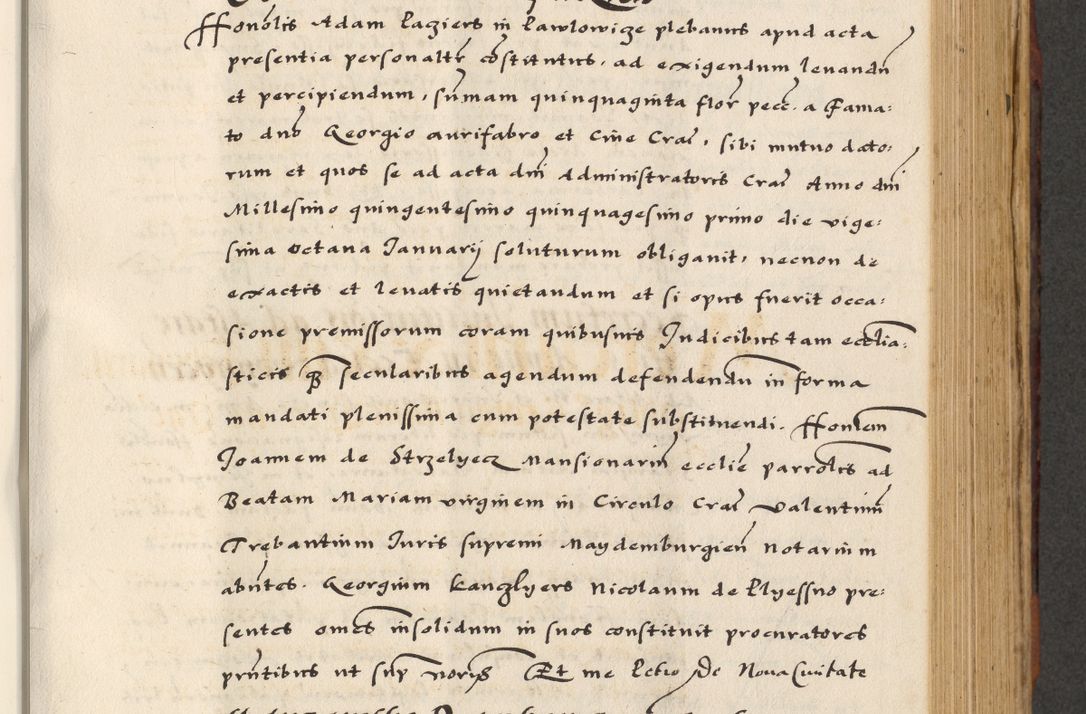 Honoblis Adam Lagiers in Lawlowicze plebanus apud acta
presentia personaltr cōstitutus, ad exigendum levandū
et percipiendum, sūmam quinquaginta flor pecc. a Fama:
to dno Georgio aurifabro et Cive Crac, sibi mutuo dato:
rum et quos se ad acta dni Administratoris Crac Anno dni
Millesimo quingentesimo quinquagesimo primo die vige:
sima octava Januarij soluturum obligavit, necnon de
exactis et levatis quietandum et si opus fuerit occa:
sione premissorum coram quibusvis Judicibus tam ecclia:
sticis q3 secularibus agendum defendendū in forma
mandati plenissima cum potestate substituendi. Honlem
Joannem de Strzelyecz Mansionariū ecclie parrolis ad
Beatam Mariam virginem in Circulo Crac Valentinū
Trebantium Juris supremi Maydemburgien Notarium
abūtes. Georgium Kanczlyers Nicolaum de Llyessno pre:
sentes omēs insolidum in suos constituit procuratores
pn̄tibus ut sup noris Et me Petro de Nova Civitate